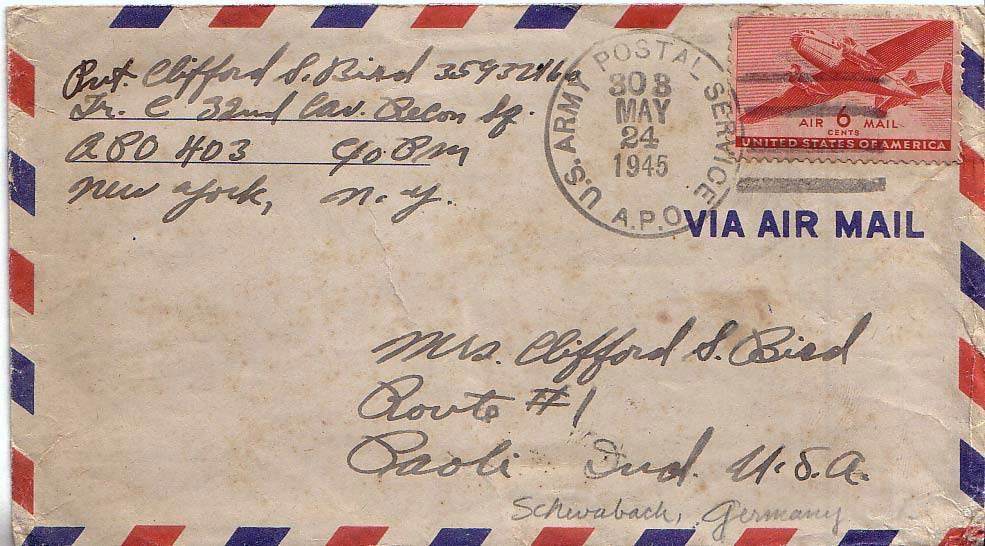 Pvt. Clifford S. Bird 35932460
Tr. C 32nd Cav. Recon Sq.
APO 403 c/o P.M
New York, N.Y.
U.S. ARMY POSTAL SERVICE
308
MAY
24
1945
A.P.O.
AIR 6 MAIL
CENTS
UNITED STATES OF AMERICA
VIA AIR MAIL
Mrs. Clifford S. Bird
Route #1
Paoli Ind. U.S.A.
Schwabach, Germany